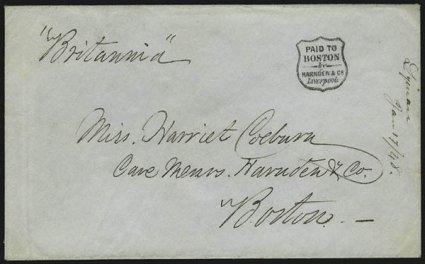 "Britannia"
PAID TO
BOSTON
by
HARNDEN & Co
Liverpool.
Miss. Harriet Coburn
Care Messrs. Harnden & Co.
Boston. —